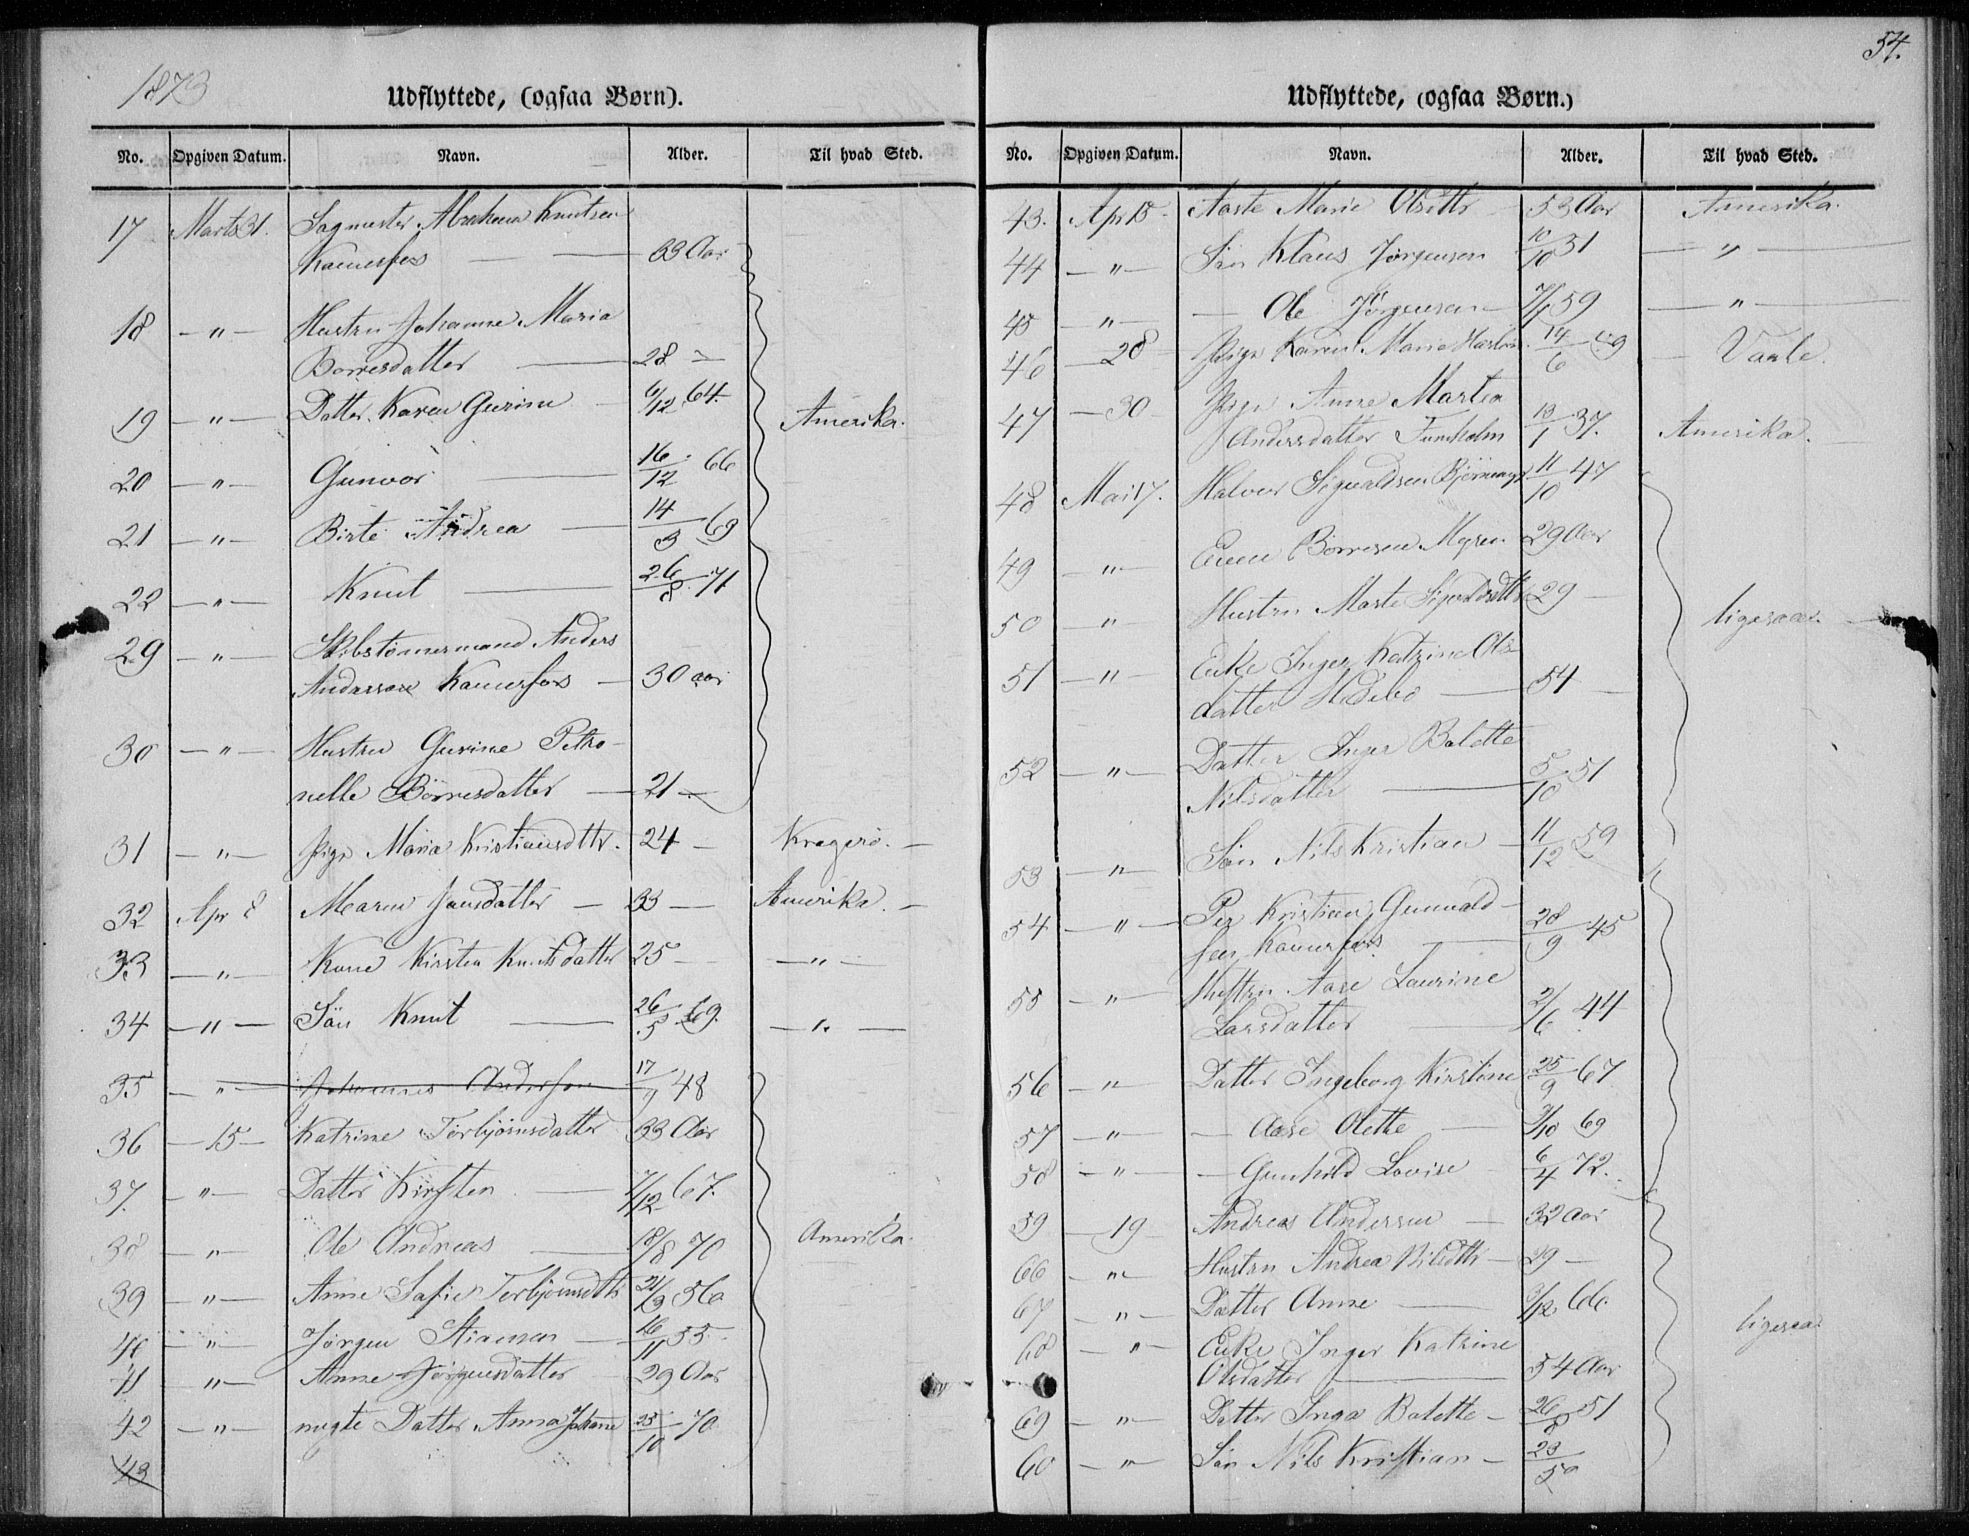 1873
Udflyttede, (ogsaa Børn).
No. Opgiven Datum. Navn. Alder. Til hvad Sted.
17 Marts 31. Sagmester Abraham Knutsen
Kamerfos — 33 Aar
18 — " — Hustru Johanne Maria
Børresdatter — 28 —
19 — " — Datter Karen Gurine 6/12 64. Amerika.
20 — " — Gunvor — 16/12 66
21 — " — Birte Andrea — 14/3 69
22 — " — Knut — 26/8 71
29 — " — Skibstømmermand Anders
Anderssen Kamerfos — 30 aar
30 — " — Hustru Gurine Petro-
nelle Børresdatter — 21 —
31 — " — Pige Maria Kristiansdttr. 24 — Kragerø. —
32 Apr 8 Maren Jansdatter — 33 — Amerika. —
33 — " — Kone Kirsten Knutsdatter 25 — — " —
34 — " — Søn Knut — 26/5 69. — " —
35 — " — Johannes Andersen 17/ 48
36 — 15 — Katrine Torbjørnsdatter 33 Aar
37. — " — Datter Kirsten — /12 67.
38 — " — Ole Andreas — 18/8 70 Amerika.
39 — " — Anne Sofie Torbjørnsdtt 21/3 56
40 — " — Jørgen Stiansen — 16/11 35
41 — " — Anne Jørgensdatter 39 Aar
42 — " — ægte Datter Anna Johanne 23/10 70
43
54.
Udflyttede, (ogsaa Børn.)
No. Opgiven Datum. Navn. Alder. Til hvad Sted.
43. Apr 15. Aaste Marie Olsdttr — 53 Aar Amerika.
44 — " — Søn Klaus Jørgensen 10/10 51 — " —
45 — " — — Ole Jørgensen — 7/ 59 — " —
46 — 28 — Pige Karen Marie 14/6 49 — Vaale.
47 — 30 — Pige Anne Martea
Andersdatter 13/1 37. Amerika. —
48 Mai 17. Halvor Sigvaldsen 11/10 47
49 — " — Børresen Myren 29 Aar
50 — " Hustru Marte Sigvaldsdttr 29 — ligesaa. —
51 — " Enke Inger Katrine Ols-
datter Hedebo — 54 —
52 — " — Datter Inger Bolette
Nilsdatter — 5/10 51
53 — " — Søn Nils Kristian — 11/12 59
54 — " — Per Kristian Gunvald-
sen Kamerfos. — 28/9 45
55 — " — Hustru Aase Laurine
Larsdatter — 2/6 44
56 — " — Datter Ingeborg Kirstine 25/9 67
57 — " — — Aase Olette — /10 69
58 — " — — Gunhild Lovise — 6/4 72.
59 — 19 — Andreas Andersen — 32 Aar
66 — " — Hustru Andrea Nilsdttr — 29 —
67 — " — Datter Anne — 3/12 66. ligesaa.
68 — " — Enke Inger Katrine
Olsdatter — 54 Aar
69 — " — Datter Inga Bolette — 26/8 51
60 — " — Søn Nils Kristian — 23/